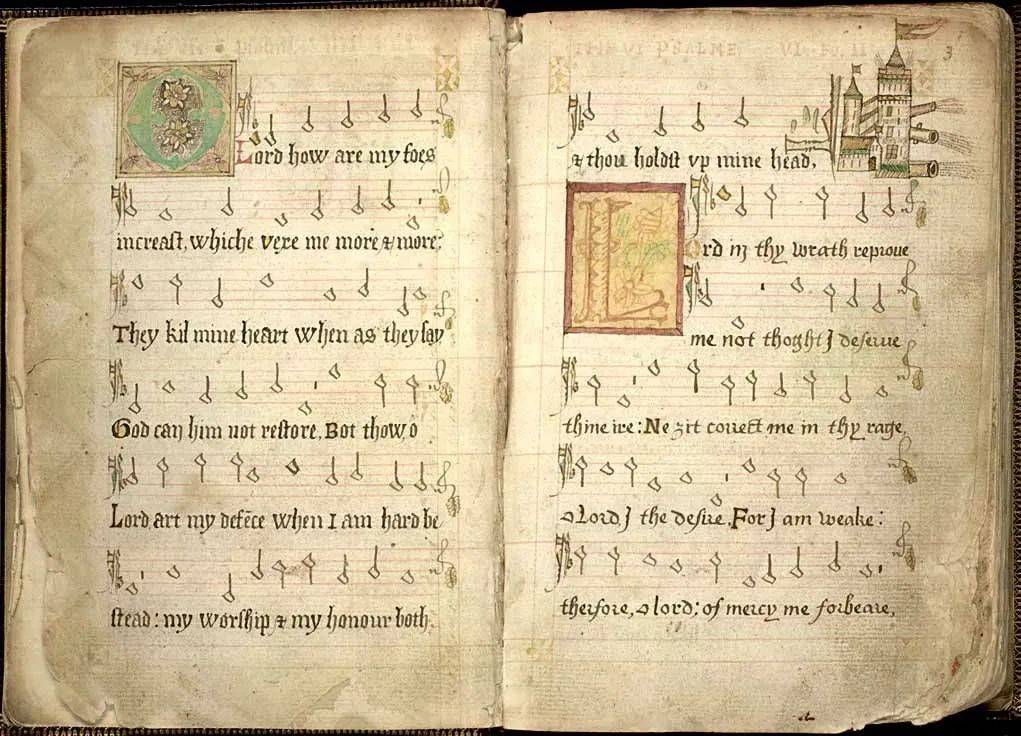 O Lord how are my foes
increast, whiche vexe me more & more:
They kil mine heart when as they say
God can him not restore. Bot thow, ô
Lord, art my defēce when I am hard be
stead: my worship & my honour both.
THE VI PSALME VI
3
& thou holdst vp mine head,
Lord in thy wrath reproue
me not thoght I deserue
thine ire: Ne ʒit correct me in thy rage,
o Lord I the desire. For I am weake:
therfore, o lord; of mercy me forbeare,